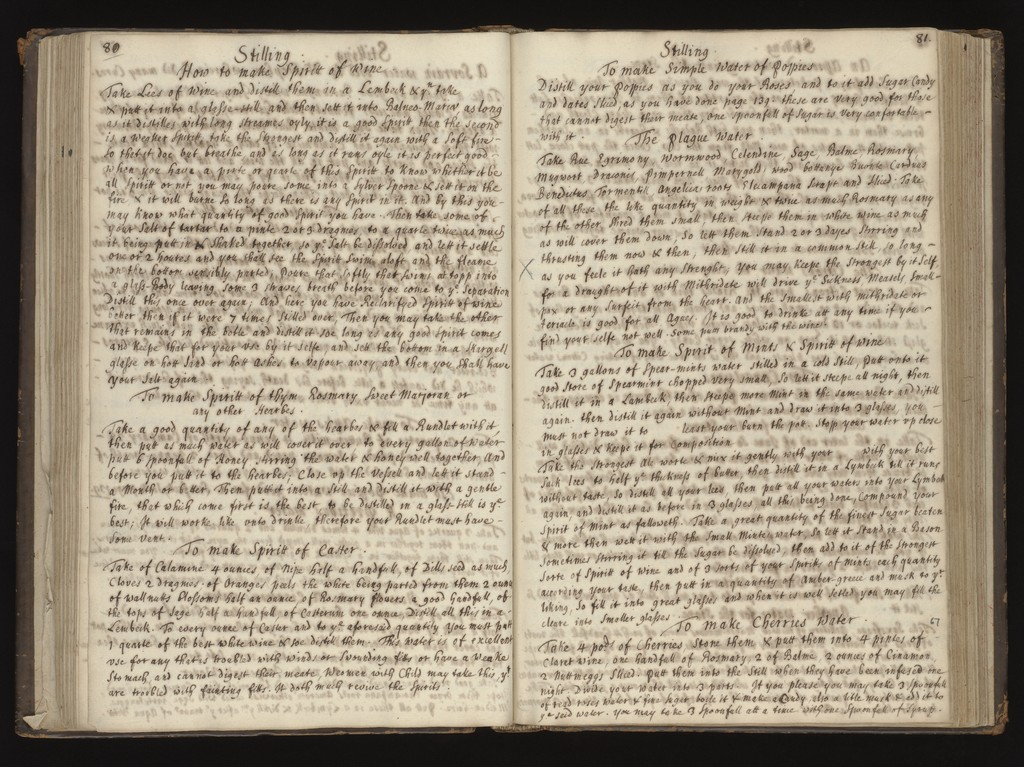 80
Stilling
How to make Spiritt of Wine
Take Lees of Wine and distill them in a Lembeck & yn take
& putt it into a glasse-still and then sett it into Balneo-Mariæ as long
as it distilles with long streames oyly, it is a good Spiritt, then the second
is a weaker Spiritt, take the strongest and distill it again with a soft fire
so that it doe but breathe and as long as it runs oyle it is perfect good
When you have a pinte or quarte of this Spiritt to know whether it be
all Spiritt or not you may poure some into a Sylver Spoone & sett it on the
fire & it will burne so long as there is any Spirit in it. And by this you
may know what quantity of good Spirit you have. Then take some of
your Salt of tartar to a pinte 2 or 3 dragmes, to a quarte twice as much
it being putt in & shaked together, so ye Salt be dissolved and lett it settle
one or 2 houres and you shall see the Spiritt Swim aloft and the fleame
on the bottom sensibly parted, Poure that softly that swims at topp into
a glass-Body leaving some 3 strawes breath before you come to ye Separation
Distill this once over again, And here you have Rectarified Spiritt of wine
better then if it were 7 times stilled over, Then you may take the other
that remains in the botle and distill it soe long as any good spirit comes
and keepe that for your use by it selfe, and sett the bottom in a
glasse on hott Sand or hott ashes to vapour away and then you shall have
your Salt again
To make Spiritt of Thym Rosmary Sweet Marjoran or
any other Hearbes
Take a good quantity of any of the hearbes & fill a Rundlet with it
then putt as much water as will cover it over to every gallon of water
putt 6 spoonfull of Honey stirring the water & Honey well together, And
before you putt it to the hearbes, Close up the Vessell and lett it stand
a Month or better, Then putt it into a Still and distill it with a gentle
fire, that which come first is the best, to be distilled in a glass-still is ye
best; It will worke like unto drinke, therefore your Rundlet must have
some vent.
To make Spiritt of Caster
Take of Calamine 4 ounces of Nipe half a handfull, of Dills seed as much
Cloves 2 dragmes of Oranges peels the white being parted from them 2 ounc
of wallnutts blossoms half an ounce of Rosmary flowers, a good handfull, of
the tops of Sage half a handfull of Castorum one ounce. Distill all this in a
Lembeck. To every ounce of Caster and to ye aforesaid quantity you must putt
1 quarte of the best white wine & soe distill them. This water is of excellent
use for any that is troubled with winds or Swounding fitts or have a weake
Stomach, and cannot digest their meate, Women with Child may take this, yt
are troubled with fainting fitts. It doth much revive the Spirits
81
Stilling
To make Simple Water of Poppies
Distill your Popies as you do your Roses and to it add Sugar Candy
and dates sliced, as you have done page 139. these are very good for those
that cannot digest their meate, one spoonfull of Sugar is very confortable
with it.
The Plague Water
Take Rue Egrimony Wormwood Celendine Sage Balme Rosmary
Mugwort, Dragons Pimpernell Marygold, wood bettonye Cardus
Benedictus Tormentill Angelica roots Elicampana Scrapt and sliced. Take
of all these the like quantity in weight & twice as much Rosmary as any
of the other, Shred them small then steepe them in white wine as much
as will cover them down, So lett them stand 2 or 3 dayes Stirring and
thrusting them now & then, then still it in a common still so long
X as you feele it hath any Strenght, you may keepe the Strongest by it self
for a draught of it with Mithredate will drive ye Sickness Measels Small-
pox or any Surfeit from the heart. And the smallest with mithredate or
teriacle is good for all Agues. It is good to drinke att any time if you
find your selfe not well. Some putt brandy with the wine
To make Spirit of Mints & Spirit of wine
Take 3 gallons of Spear-mints water stilled in a cold still, putt onto it
good store of Spearmint chopped very small, So lett it steepe all night, then
distill it in a Lymbeck, then steepe more Mint in the same water and distill
again. then distill it again without Mint and draw it into 3 glasses, you
must not draw it to least your burn the pot. Stop your water up close
in glasses & keepe it for Composition
Take the strongest Ale worte & mix it gently with your with your best
Sack lees to half ye thickness of butter, then distill it in a Lymbeck till it runs
without taste, So distill all your lees, then putt all your waters into your Lymbek
again, and distill it as before in 3 glasses all this being done, Compound your
Spirit of Mint as falloweth. Take a great quantity of the finest Sugar beaten
& more then wett it with the small Minte water, So lett it Stand in a Bason
Sometimes Stirring it till the Sugar be dissolved, then add to it of the strongest
Sorte of Spiritt of wine and of 3 sorts of your Spirits of Mints each quantity
according your taste, then putt in a quantity of Amber-greece and musk to yr
liking, So fill it into great glasses and when it is well setled you may fill the
cleare into smaller glasses.
To make Cherries Water
67
Take 4 pods of Cherries Stone them & putt them into 4 pintes of
Claret wine, one handfull of Rosmary, 2 of Balme, 2 ounces of Cinamon,
2 Nuttmeggs sliced. Putt them into the Still when they have been infused one
night. Divide your water into 3 parts. If you please you may take 3 spoonfuls
of red roses water & fine sugar boyle it & make a Candy also a little musk & add it to
ye said water. you may take 3 spoonfull att a time with one spoonfull of Syrup.